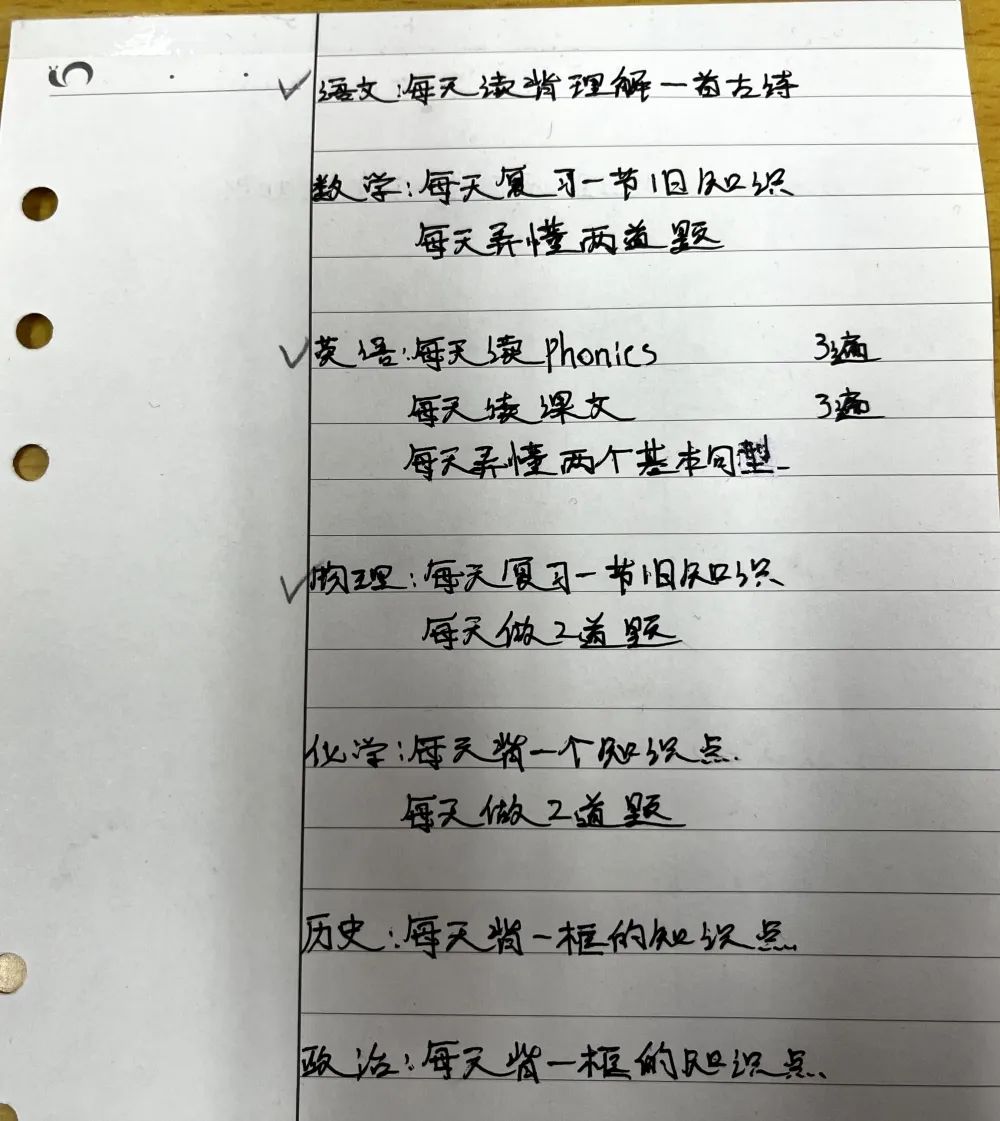 语文:每天读背理解一首古诗
数学:每天复习一节旧知识
每天弄懂两道题
英语:每天读phonics 3遍
每天读课文 3遍
每天弄懂两个基本句型
物理:每天复习一节旧知识
每天做2道题
化学:每天背一个知识点.
每天做2道题
历史:每天背一框的知识点.
政治:每天背一框的知识点.